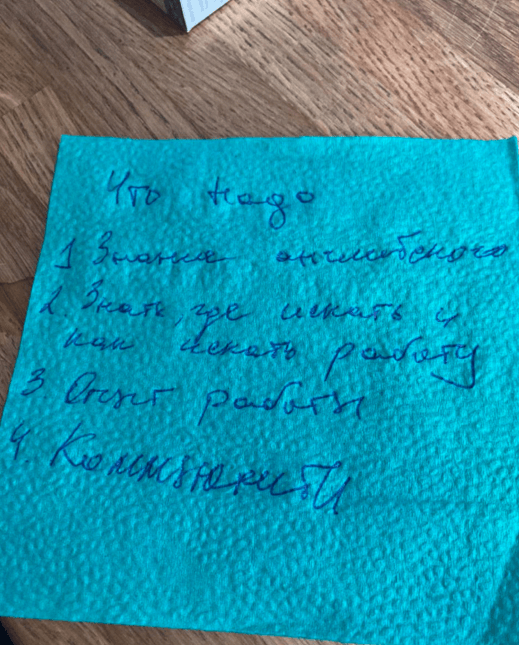 Что надо
1 Знание английского
2. Знать, где искать и
как искать работу
3. Опыт работы
4. Коммьюнити